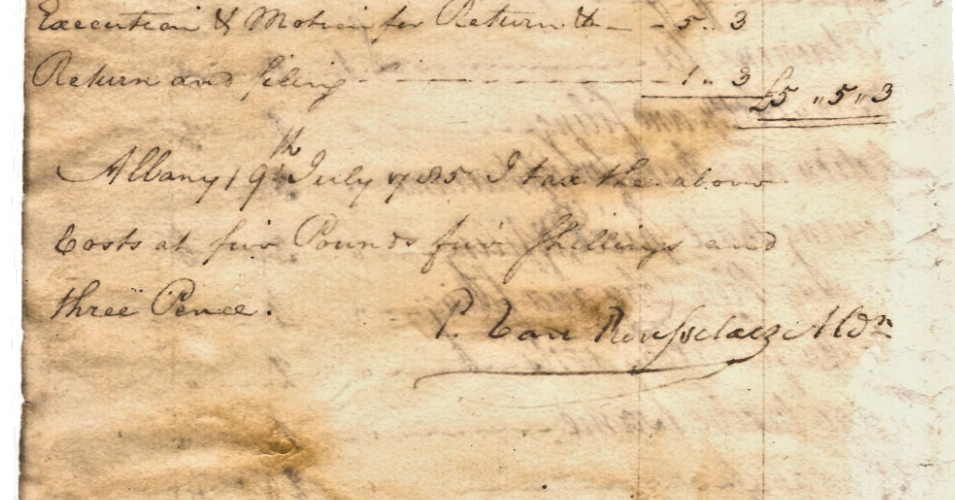 Execution & Motion for Return &c — - 5 .. 3
Return and filing - - - - - - 1 .. 3 £5 " 5 " 3
Albany 19th July 1785 I tax the above
Costs at five Pounds five Shillings and
three Pence.
P. Van Rensselaer Aldn